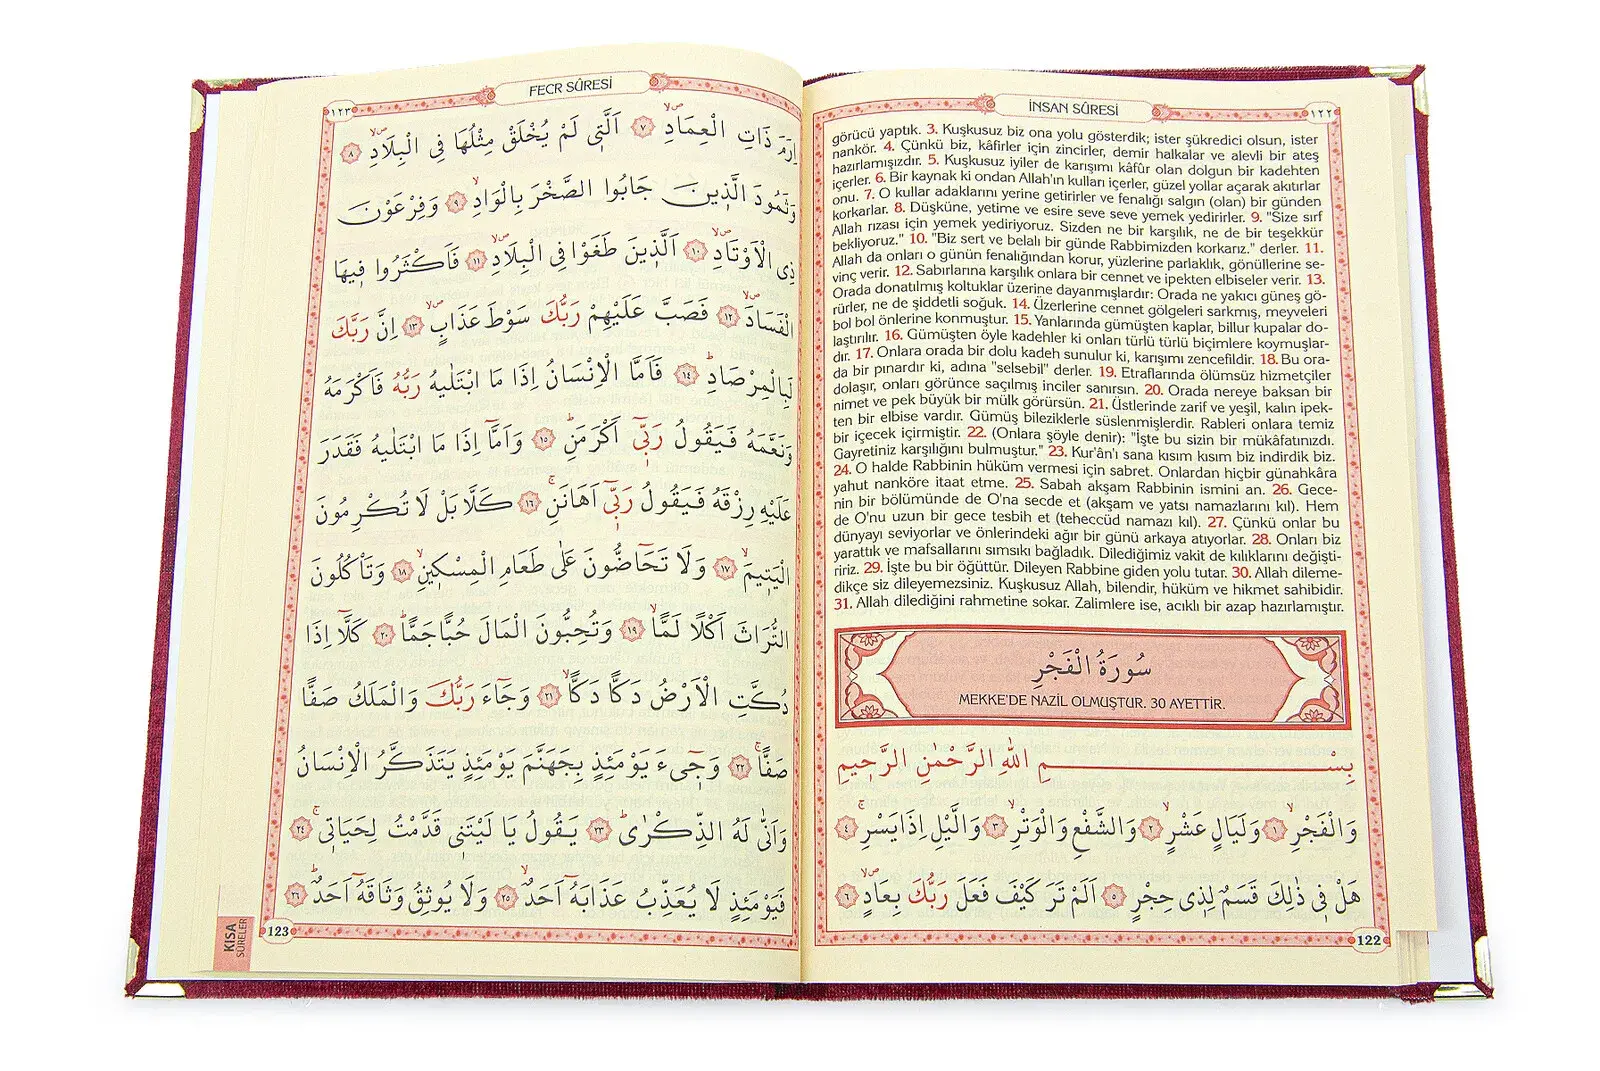 İNSAN SÛRESİ
١٢٢
görücü yaptık. 3. Kuşkusuz biz ona yolu gösterdik; ister şükredici olsun, ister
nankör. 4. Çünkü biz, kâfirler için zincirler, demir halkalar ve alevli bir ateş
hazırlamışızdır. 5. Kuşkusuz iyiler de karışımı kâfûr olan dolgun bir kadehten
içerler. 6. Bir kaynak ki ondan Allah'ın kulları içerler, güzel yollar açarak akıtırlar
onu. 7. O kullar adaklarını yerine getirirler ve fenalığı salgın (olan) bir günden
korkarlar. 8. Düşküne, yetime ve esire seve seve yemek yedirirler. 9. "Size sırf
Allah rızası için yemek yediriyoruz. Sizden ne bir karşılık, ne de bir teşekkür
bekliyoruz." 10. "Biz sert ve belalı bir günde Rabbimizden korkarız." derler. 11.
Allah da onları o günün fenalığından korur, yüzlerine parlaklık, gönüllerine se-
vinç verir. 12. Sabırlarına karşılık onlara bir cennet ve ipekten elbiseler verir. 13.
Orada donatılmış koltuklar üzerine dayanmışlardır: Orada ne yakıcı güneş gö-
rürler, ne de şiddetli soğuk. 14. Üzerlerine cennet gölgeleri sarkmış, meyveleri
bol bol önlerine konmuştur. 15. Yanlarında gümüşten kaplar, billur kupalar do-
laştırılır. 16. Gümüşten öyle kadehler ki onları türlü türlü biçimlere koymuşlar-
dır. 17. Onlara orada bir dolu kadeh sunulur ki, karışımı zencefildir. 18. Bu ora-
da bir pınardır ki, adına "selsebil" derler. 19. Etraflarında ölümsüz hizmetçiler
dolaşır, onları görünce saçılmış inciler sanırsın. 20. Orada nereye baksan bir
nimet ve pek büyük bir mülk görürsün. 21. Üstlerinde zarif ve yeşil, kalın ipek-
ten bir elbise vardır. Gümüş bileziklerle süslenmişlerdir. Rableri onlara temiz
bir içecek içirmiştir. 22. (Onlara şöyle denir): "İşte bu sizin bir mükâfatınızdı.
Gayretiniz karşılığını bulmuştur." 23. Kur'ân'ı sana kısım kısım biz indirdik biz.
24. O halde Rabbinin hüküm vermesi için sabret. Onlardan hiçbir günahkâra
yahut nanköre itaat etme. 25. Sabah akşam Rabbinin ismini an. 26. Gece-
nin bir bölümünde de O'na secde et (akşam ve yatsı namazlarını kıl). Hem
de O'nu uzun bir gece tesbih et (teheccüd namazı kıl). 27. Çünkü onlar bu
dünyayı seviyorlar ve önlerindeki ağır bir günü arkaya atıyorlar. 28. Onları biz
yarattık ve mafsallarını sımsıkı bağladık. Dilediğimiz vakit de kılıklarını değişti-
ririz. 29. İşte bu bir öğüttür. Dileyen Rabbine giden yolu tutar. 30. Allah dileme-
dikçe siz dileyemezsiniz. Kuşkusuz Allah, bilendir, hüküm ve hikmet sahibidir.
31. Allah dilediğini rahmetine sokar. Zalimlere ise, acıklı bir azap hazırlamıştır.
سُورَةُ الْفَجْرِ
MEKKE'DE NAZİL OLMUŞTUR. 30 AYETTİR.
بِسْمِ اللّٰهِ الرَّحْمٰنِ الرَّحٖيمِ
وَالْفَجْرِۙ ١ وَلَيَالٍ عَشْرٍۙ ٢ وَالشَّفْعِ وَالْوَتْرِۙ ٣ وَالَّيْلِ اِذَا يَسْرِۚ ٤
هَلْ فٖى ذٰلِكَ قَسَمٌ لِذٖى حِجْرٍ ٥ اَلَمْ تَرَ كَيْفَ فَعَلَ رَبُّكَ بِعَادٍۙۖ ٦
122
FECR SÛRESİ
١٢٣
اِرَمَ ذَاتِ الْعِمَادِۙۖ ٧ اَلَّتٖى لَمْ يُخْلَقْ مِثْلُهَا فِى الْبِلَادِۙۖ ٨
وَثَمُودَ الَّذٖينَ جَابُوا الصَّخْرَ بِالْوَادِۙ ٩ وَفِرْعَوْنَ
ذِى الْاَوْتَادِۙۖ ١٠ اَلَّذٖينَ طَغَوْا فِى الْبِلَادِۙۖ ١١ فَاَكْثَرُوا فٖيهَا
الْفَسَادَۙۖ ١٢ فَصَبَّ عَلَيْهِمْ رَبُّكَ سَوْطَ عَذَابٍۙۖ ١٣ اِنَّ رَبَّكَ
لَبِالْمِرْصَادِۜ ١٤ فَاَمَّا الْاِنْسَانُ اِذَا مَا ابْتَلٰيهُ رَبُّهُ فَاَكْرَمَهُ
وَنَعَّمَهُ فَيَقُولُ رَبّٖٓى اَكْرَمَنِۜ ١٥ وَاَمَّٓا اِذَا مَا ابْتَلٰيهُ فَقَدَرَ
عَلَيْهِ رِزْقَهُ فَيَقُولُ رَبّٖٓى اَهَانَنِۚ ١٦ كَلَّا بَلْ لَا تُكْرِمُونَ
الْيَتٖيمَۙ ١٧ وَلَا تَحَٓاضُّونَ عَلٰى طَعَامِ الْمِسْكٖينِۙ ١٨ وَتَاْكُلُونَ
التُّرَاثَ اَكْلًا لَمًّاۙ ١٩ وَتُحِبُّونَ الْمَالَ حُبًّا جَمًّاۜ ٢٠ كَلَّٓا اِذَا
دُكَّتِ الْاَرْضُ دَكًّا دَكًّاۙ ٢١ وَجَٓاءَ رَبُّكَ وَالْمَلَكُ صَفًّا
صَفًّاۚ ٢٢ وَجٖٓىءَ يَوْمَئِذٍ بِجَهَنَّمَ يَوْمَئِذٍ يَتَذَكَّرُ الْاِنْسَانُ
وَاَنّٰى لَهُ الذِّكْرٰىۜ ٢٣ يَقُولُ يَا لَيْتَنٖى قَدَّمْتُ لِحَيَاتٖىۚ ٢٤
فَيَوْمَئِذٍ لَا يُعَذِّبُ عَذَابَهُٓ اَحَدٌۙ ٢٥ وَلَا يُوثِقُ وَثَاقَهُٓ اَحَدٌۜ ٢٦
123
KISA
SÛRELER